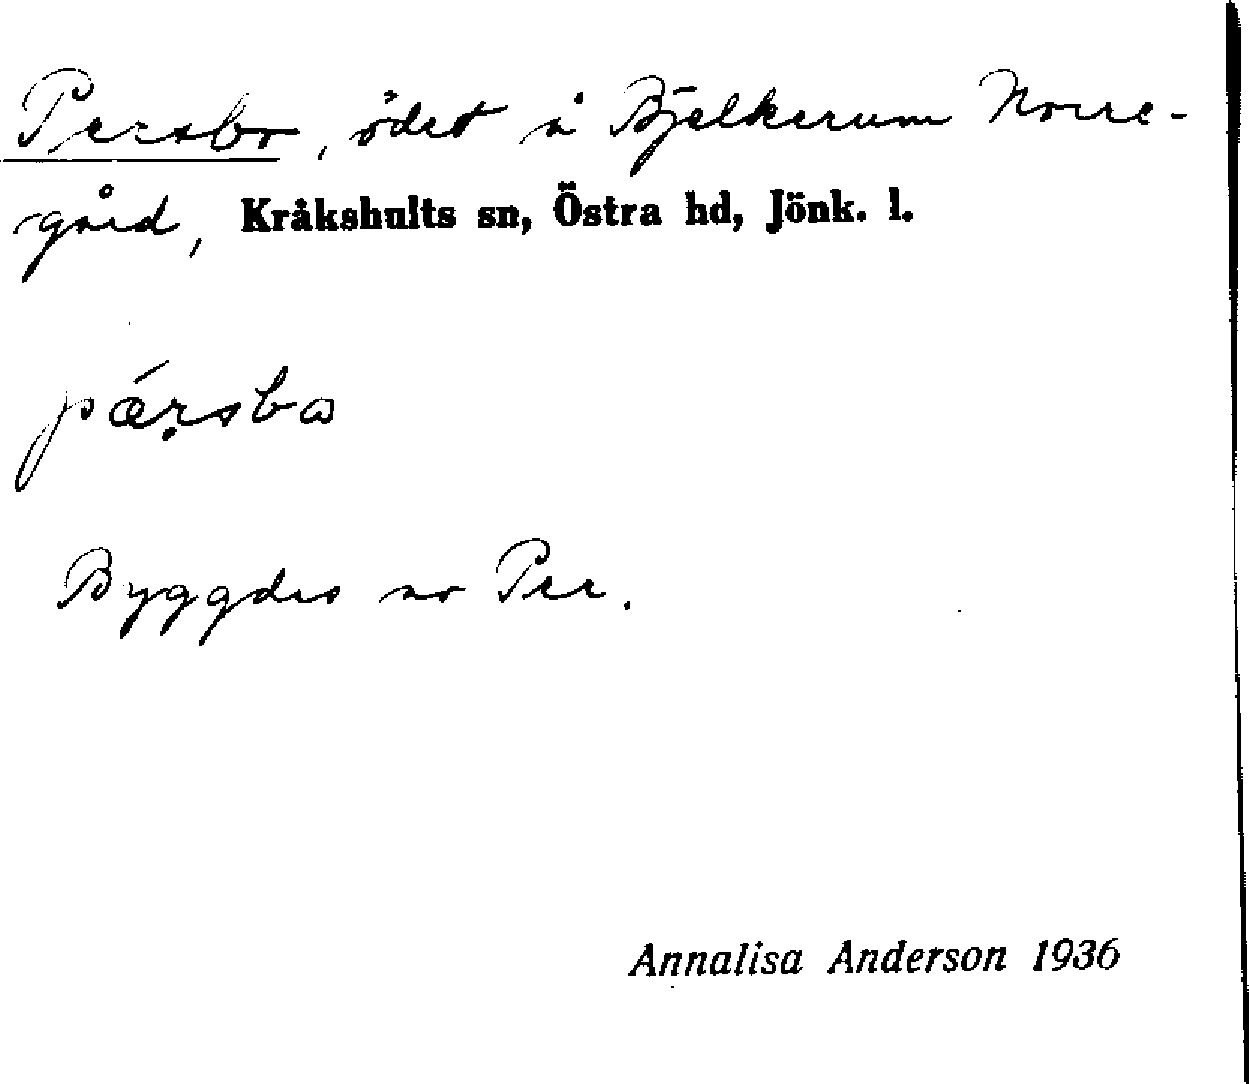 Persbo, ödet å Bjelkerum Norre-
gård, Kråkshults sn, Östra hd, Jönk. l.
pǽrsbo
Byggdes av Per.
Annalisa Anderson 1936